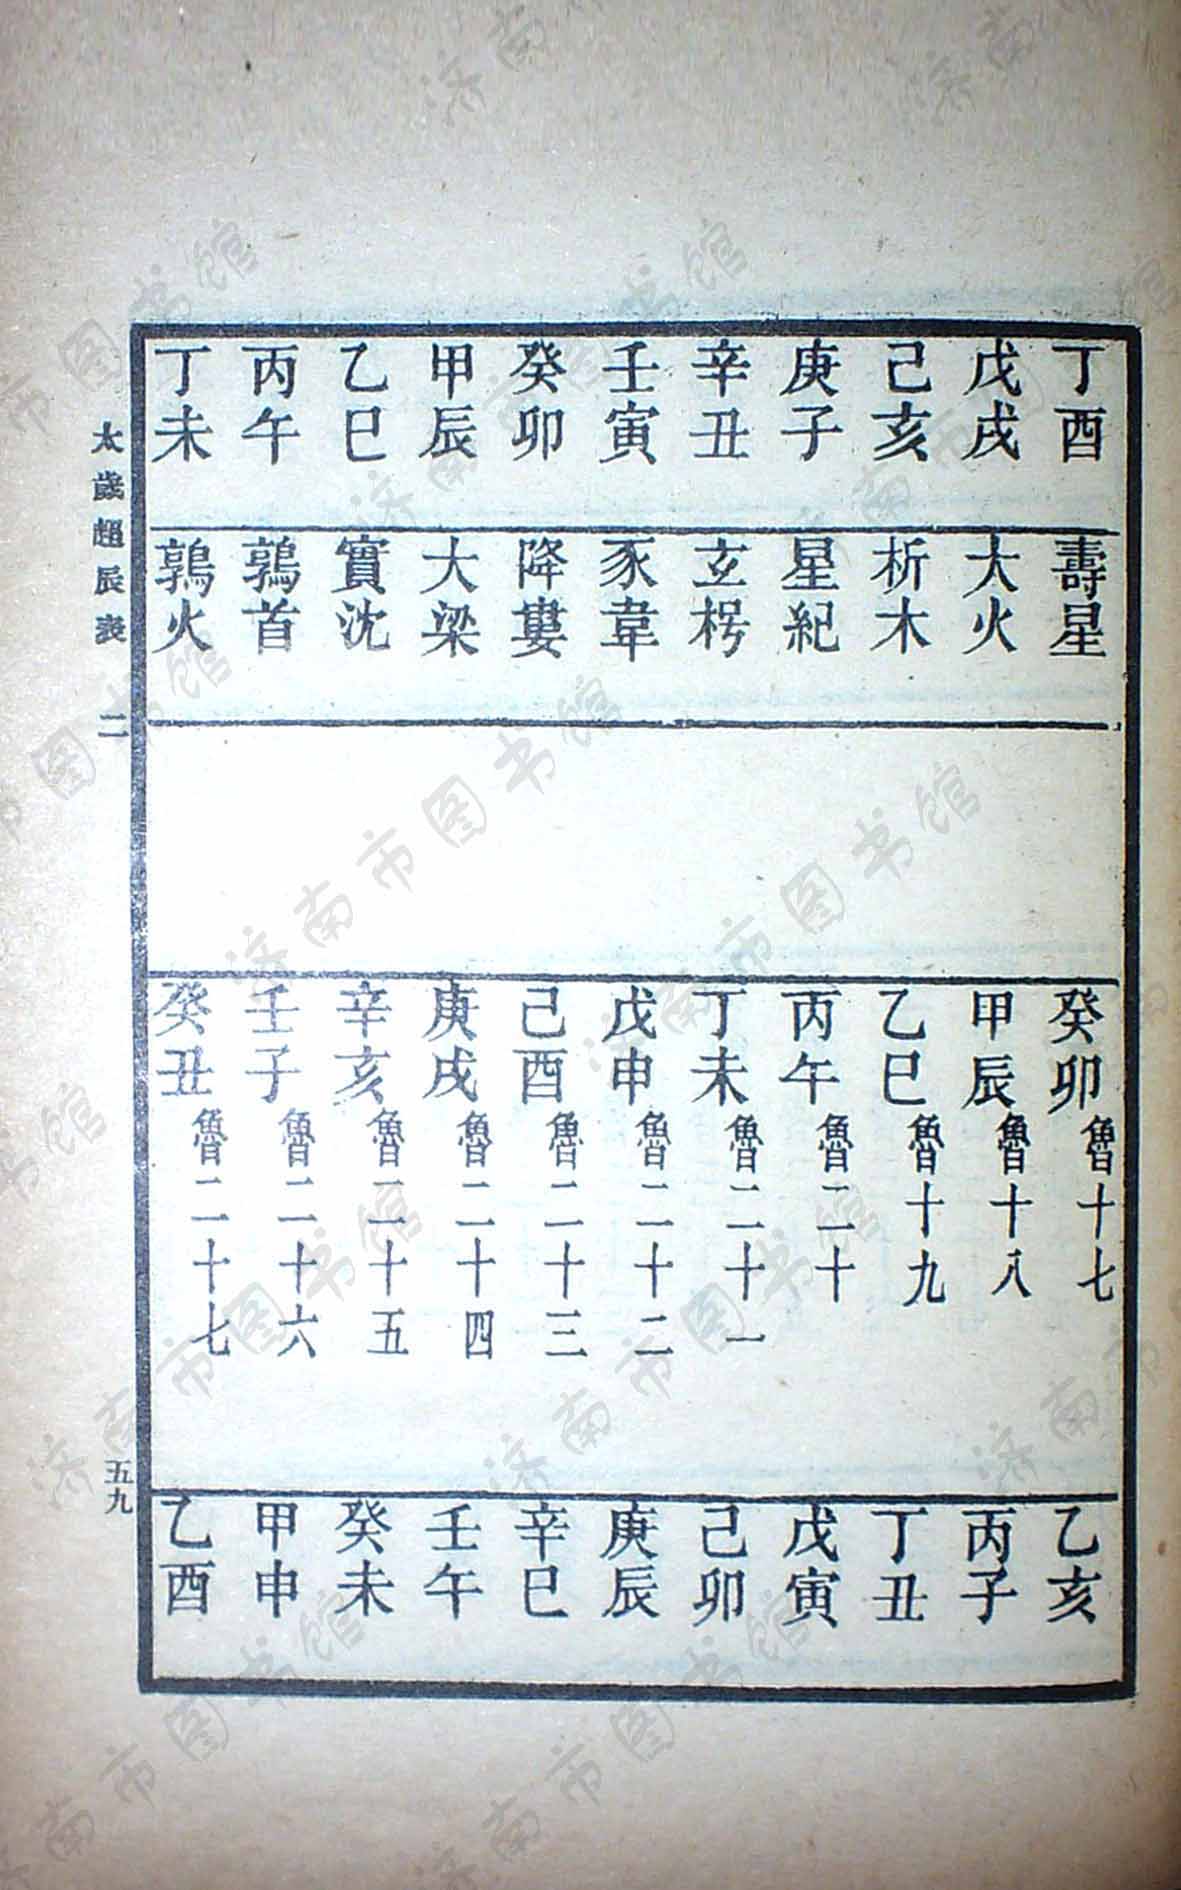 丁酉 壽星 癸卯 魯十七 乙亥
戊戌 大火 甲辰 魯十八 丙子
己亥 析木 乙巳 魯十九 丁丑
庚子 星紀 丙午 魯二十 戊寅
辛丑 玄枵 丁未 魯二十一 己卯
壬寅 豕韋 戊申 魯二十二 庚辰
癸卯 降婁 己酉 魯二十三 辛巳
甲辰 大梁 庚戌 魯二十四 壬午
乙巳 實沈 辛亥 魯二十五 癸未
丙午 鶉首 壬子 魯二十六 甲申
丁未 鶉火 癸丑 魯二十七 乙酉
太歲超辰表 二 五九
济南市图书馆